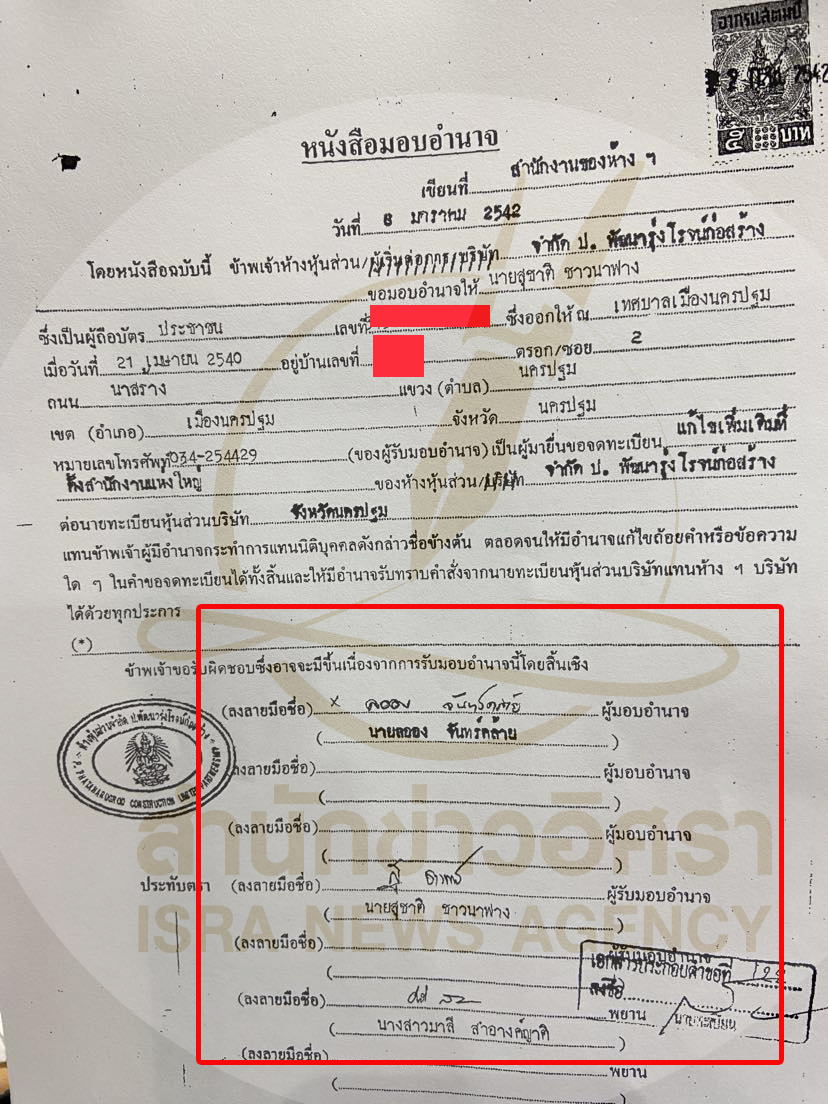 อากรแสตมป์
2542
๕ บาท
หนังสือมอบอำนาจ
เขียนที่ สำนักงานของห้าง ฯ
วันที่ 8 มกราคม 2542
โดยหนังสือฉบับนี้ ข้าพเจ้าห้างหุ้นส่วน/ผู้เริ่มก่อการ/บริษัท จำกัด ป. พัฒนารุ่งโรจน์ก่อสร้าง
ขอมอบอำนาจให้ นายสุชาติ ชาวนาฟาง
ซึ่งเป็นผู้ถือบัตร ประชาชน เลขที่ ซึ่งออกให้ ณ เทศบาลเมืองนครปฐม
เมื่อวันที่ 21 เมษายน 2540 อยู่บ้านเลขที่ ตรอก/ซอย 2
ถนน นาสร้าง แขวง (ตำบล) นครปฐม
เขต (อำเภอ) เมืองนครปฐม จังหวัด นครปฐม
หมายเลขโทรศัพท์ 034-254429 (ของผู้รับมอบอำนาจ) เป็นผู้มายื่นขอจดทะเบียน แก้ไขเพิ่มเติมที่
ตั้งสำนักงานแห่งใหญ่ ของห้างหุ้นส่วน/บริษัท จำกัด ป. พัฒนารุ่งโรจน์ก่อสร้าง
ต่อนายทะเบียนหุ้นส่วนบริษัท จังหวัดนครปฐม
แทนข้าพเจ้าผู้มีอำนาจกระทำการแทนนิติบุคคลดังกล่าวชื่อข้างต้น ตลอดจนให้มีอำนาจแก้ไขถ้อยคำหรือข้อความ
ใด ๆ ในคำขอจดทะเบียนได้ทั้งสิ้นและให้มีอำนาจรับทราบคำสั่งจากนายทะเบียนหุ้นส่วนบริษัทแทนห้าง ฯ บริษัท
ได้ด้วยทุกประการ
(*)
ข้าพเจ้าขอรับผิดชอบซึ่งอาจจะมีขึ้นเนื่องจากการรับมอบอำนาจนี้โดยสิ้นเชิง
(ลงลายมือชื่อ) x ลออง จันทร์คล้าย ผู้มอบอำนาจ
(นายลออง จันทร์คล้าย)
(ลงลายมือชื่อ) ผู้มอบอำนาจ
( )
(ลงลายมือชื่อ) ผู้มอบอำนาจ
( )
ประทับตรา (ลงลายมือชื่อ) ผู้รับมอบอำนาจ
(นายสุชาติ ชาวนาฟาง)
(ลงลายมือชื่อ) ผู้รับมอบอำนาจ
( เอกสารประกอบคำขอที่
ลงชื่อ
(ลงลายมือชื่อ) พยาน นายทะเบียน
(นางสาวมาลี สำอางค์ญาติ)
(ลงลายมือชื่อ) พยาน
( )
สำนักข่าวอิศรา
ISRA NEWS AGENCY